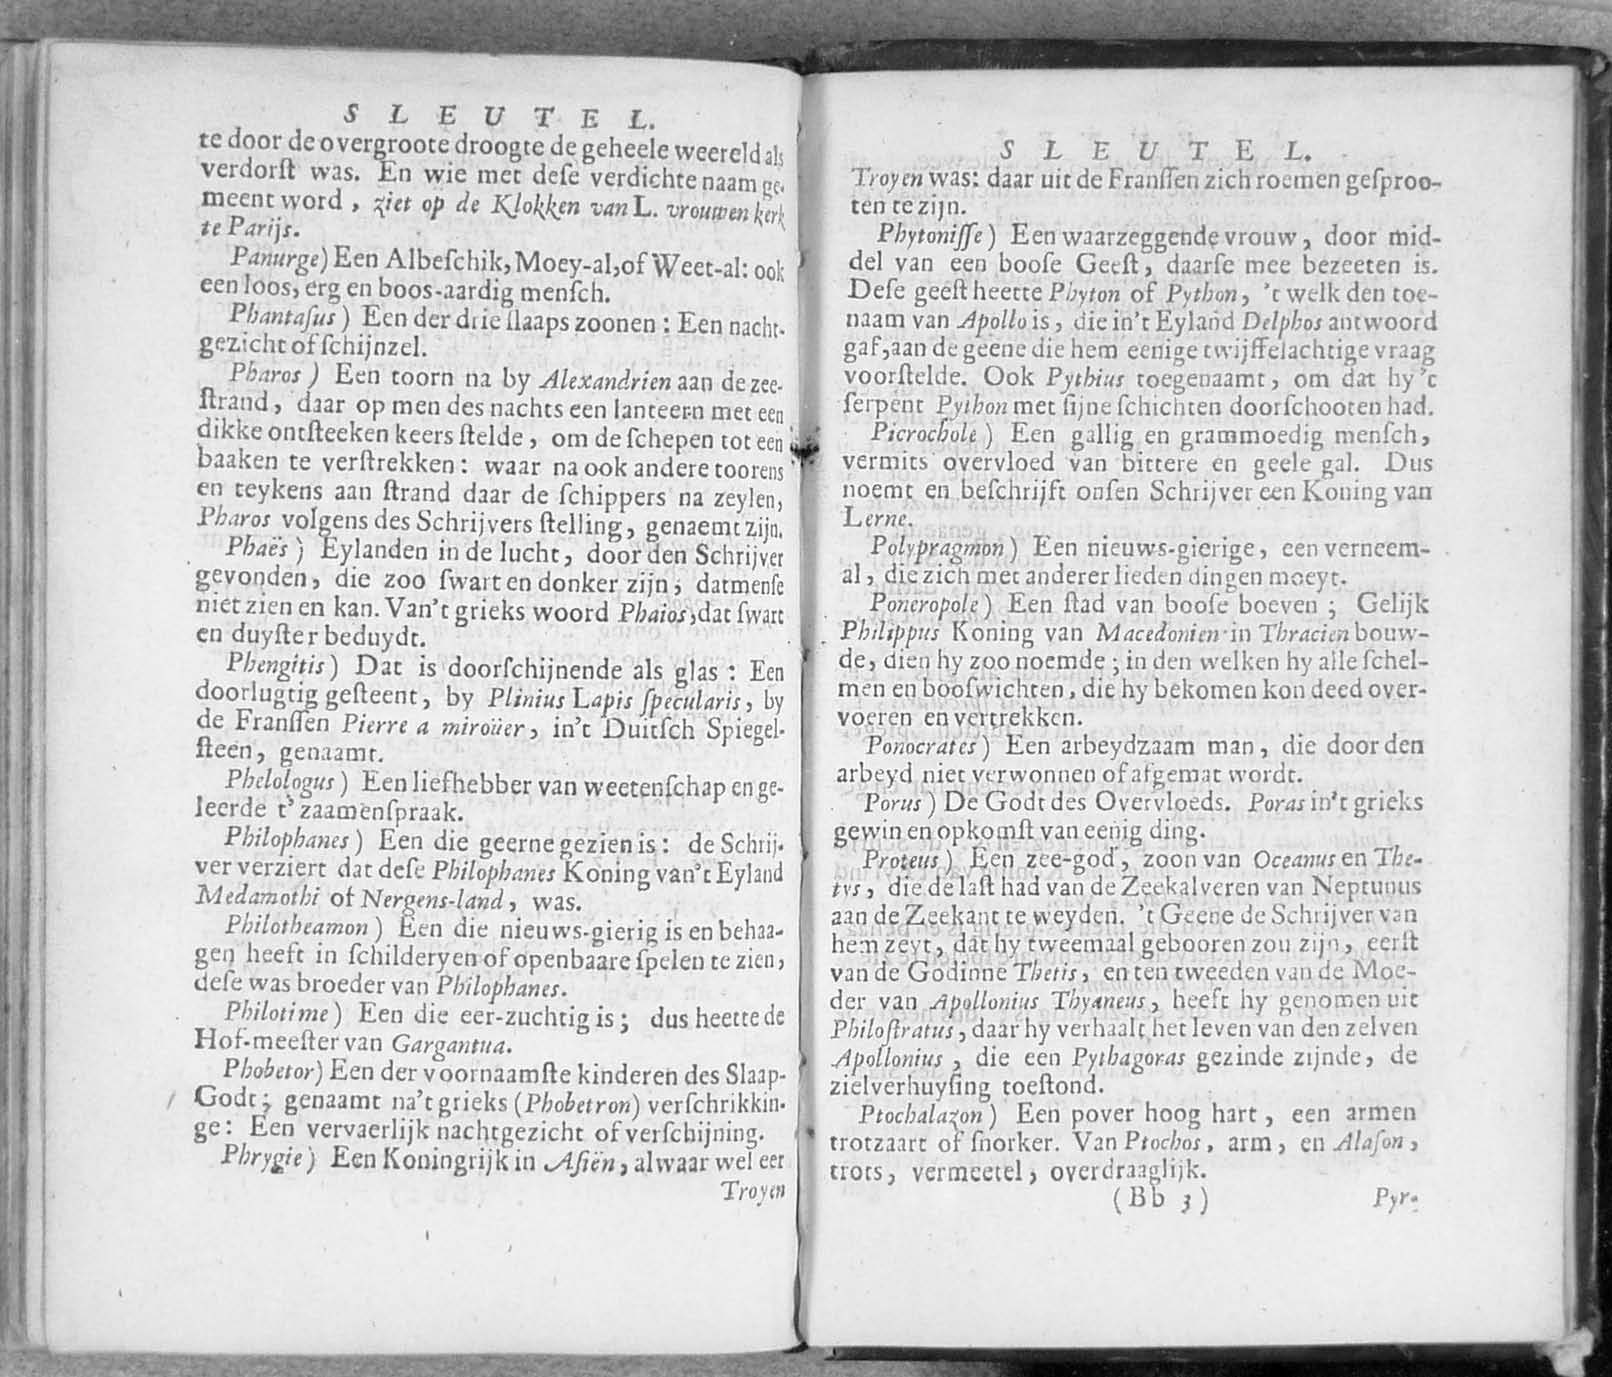 SLEUTEL.
te door de overgroote droogte de geheele weereld als
verdorſt was. En wie met deſe verdichte naam ge-
meent word, ziet op de Klokken van L. vrouwen kerk
te Parijs.
Panurge) Een Albeſchik, Moey-al, of Weet-al: ook
een loos, erg en boos-aardig menſch.
Phantaſus) Een der drie ſlaaps zoonen: Een nacht-
gezicht of ſchijnzel.
Pharos) Een toorn na by Alexandrien aan de zee-
ſtrand, daar op men des nachts een lanteern met een
dikke ontſteeken keers ſtelde, om de ſchepen tot een
baaken te verſtrekken: waar na ook andere toorens
en teykens aan ſtrand daar de ſchippers na zeylen,
Pharos volgens des Schrijvers ſtelling, genaemt zijn.
Phaës) Eylanden in de lucht, door den Schrijver
gevonden, die zoo ſwart en donker zijn, datmenſe
niet zien en kan. Van't grieks woord Phaios, dat ſwart
en duyſter beduydt.
Phengitis) Dat is doorſchijnende als glas: Een
doorlugtig geſteent, by Plinius Lapis ſpecularis, by
de Franſſen Pierre a miroüer, in't Duitſch Spiegel-
ſteen, genaamt.
Phelologus) Een liefhebber van weetenſchap en ge-
leerde t'zaamenſpraak.
Philophanes) Een die geerne gezien is: de Schrij-
ver verziert dat deſe Philophanes Koning van't Eyland
Medamothi of Nergens-land, was.
Philotheamon) Een die nieuws-gierig is en behaa-
gen heeft in ſchilderyen of openbaare ſpelen te zien,
deſe was broeder van Philophanes.
Philotime) Een die eer-zuchtig is; dus heette de
Hof-meeſter van Gargantua.
Phobetor) Een der voornaamſte kinderen des Slaap-
Godt; genaamt na't grieks (Phobetron) verſchrikkin-
ge: Een vervaerlijk nachtgezicht of verſchijning.
Phrygie) Een Koningrijk in Aſiën, alwaar wel eer
Troyen
SLEUTEL.
Troyen was: daar uit de Franſſen zich roemen geſproo-
ten te zijn.
Phytoniſſe) Een waarzeggende vrouw, door mid-
del van een booſe Geeſt, daarſe mee bezeeten is.
Deſe geeſt heette Phyton of Python, 't welk den toe-
naam van Apollo is, die in't Eyland Delphos antwoord
gaf, aan de geene die hem eenige twijffelachtige vraag
voorſtelde. Ook Pythius toegenaamt, om dat hy 't
ſerpent Python met ſijne ſchichten doorſchooten had.
Picrochole) Een gallig en grammoedig menſch,
vermits overvloed van bittere en geele gal. Dus
noemt en beſchrijft onſen Schrijver een Koning van
Lerne.
Polypragmon) Een nieuws-gierige, een verneem-
al, die zich met anderer lieden dingen moeyt.
Poneropole) Een ſtad van booſe boeven; Gelijk
Philippus Koning van Macedonien in Thracien bouw-
de, dien hy zoo noemde; in den welken hy alle ſchel-
men en booſwichten, die hy bekomen kon deed over-
voeren en vertrekken.
Ponocrates) Een arbeydzaam man, die door den
arbeyd niet verwonnen of afgemat wordt.
Porus) De Godt des Overvloeds. Poras in't grieks
gewin en opkomſt van eenig ding.
Proteus) Een zee-god, zoon van Oceanus en The-
tys, die de laſt had van de Zeekalveren van Neptunus
aan de Zeekant te weyden. 't Geene de Schrijver van
hem zeyt, dat hy tweemaal gebooren zou zijn, eerſt
van de Godinne Thetis, en ten tweeden van de Moe-
der van Apollonius Thyaneus, heeft hy genomen uit
Philoſtratus, daar hy verhaalt het leven van den zelven
Apollonius, die een Pythagoras gezinde zijnde, de
zielverhuyſing toeſtond.
Ptochalazon) Een pover hoog hart, een armen
trotzaart of ſnorker. Van Ptochos, arm, en Alaſon,
trots, vermeetel, overdraaglijk.
(Bb 3) Pyr-